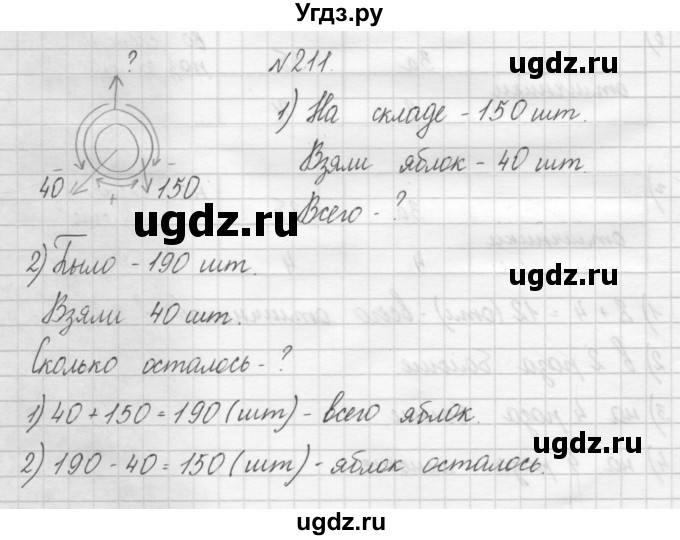 Угдз.ру
?
40
-
-
+
150
№211.
1) На складе - 150 шт.
Взяли яблок - 40 шт.
Всего - ?
2) Было - 190 шт.
Взяли 40 шт.
Сколько осталось - ?
1) 40 + 150 = 190 (шт) - всего яблок.
2) 190 - 40 = 150 (шт) - яблок осталось.
ugdz.ru
ugdz.ru
ugdz.ru
ugdz.ru
ugdz.ru
ugdz.ru